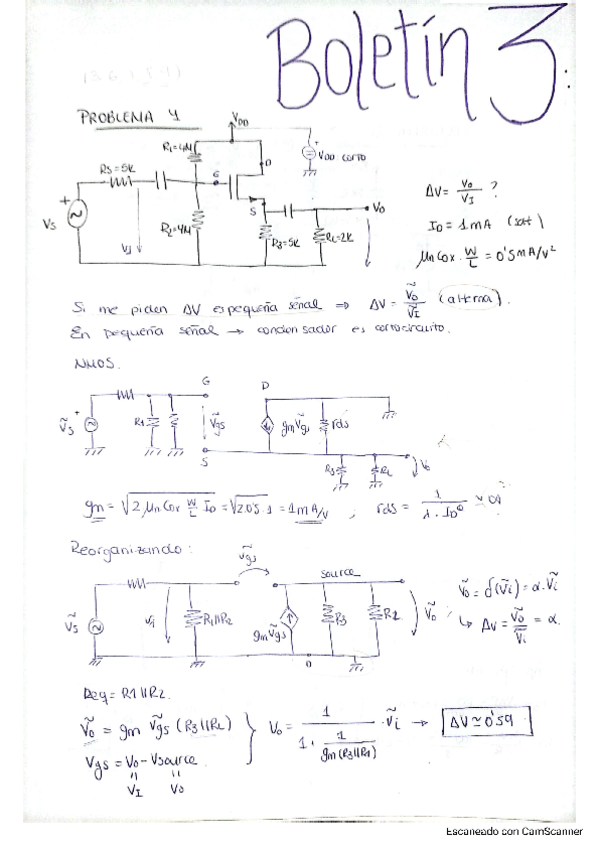 Boletín 3.
PROBLEMA 4
VDD
R1=4M
D
VDD corto
RS=5K
G
S
Vo
VS
Vi
R2=4M
R3=5K
RL=2K
ΔV = Vo/VI ?
ID = 1mA (sat)
μnCox · W/L = 0'5mA/V²
Si me piden ΔV es pequeña señal ⇒ ΔV = Ṽo/ṼI (alterna).
En pequeña señal → condensador es cortocircuito.
NMOS.
G
D
Ṽs
R1
Ṽgs
gmṼgs
rds
S
R3
RL
Ṽo
gm = √2 μnCox W/L ID = √2·0'5·1 = 1mA/V ; rds = 1/λ·ID
Reorganizando:
Ṽgs
source
Ṽs
Vi
R1||R2
gmṼgs
R3
R2
Ṽo
Ṽo = f(Ṽi) = α·Ṽi
↳ Av = Ṽo/Ṽi = α.
Req = R1||R2.
Ṽo = gm Ṽgs (R3||RL)
Vo = 1/1 · 1/gm(R3||R1) · Ṽi → ΔV ≃ 0'59
Vgs = Vo - Vsource
VI
Vo
Escaneado con CamScanner